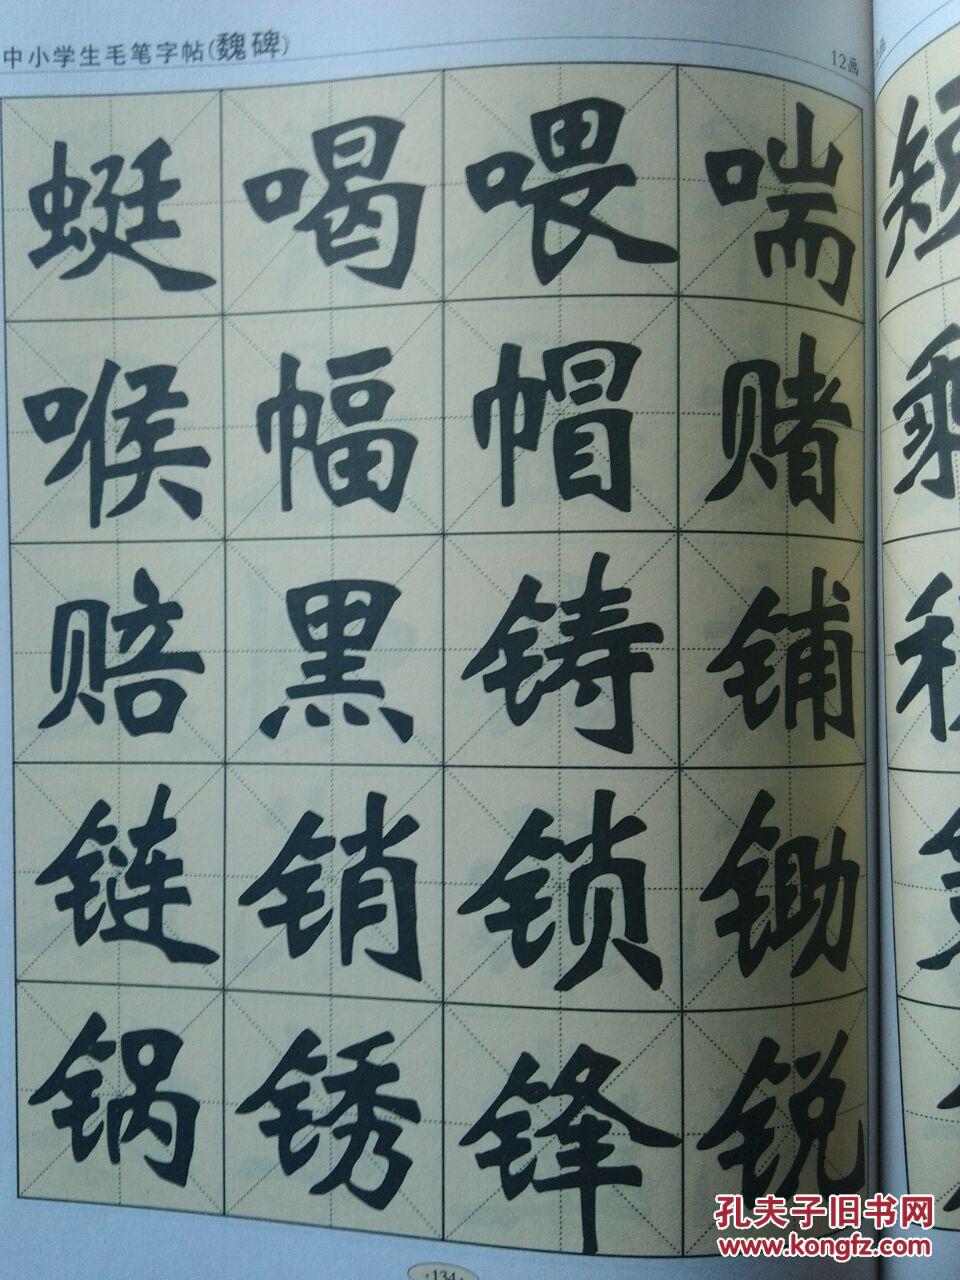 中小学生毛笔字帖(魏碑)
12画
蜓喝喂喘
喉幅帽赌
赔黑铸铺
链销锁锄
锅锈锋锐
·134·
孔夫子旧书网
www.kongfz.com